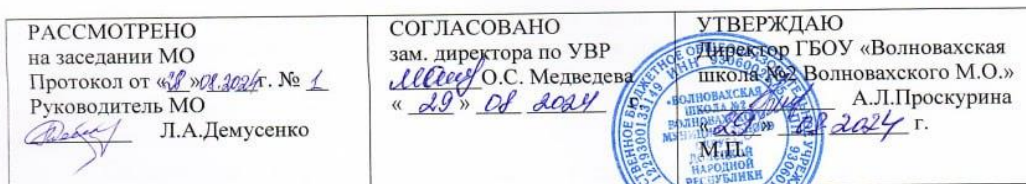 РАССМОТРЕНО
на заседании МО
Протокол от «28 »08.2024г. № 1
Руководитель МО
Л.А.Демусенко
СОГЛАСОВАНО
зам. директора по УВР
О.С. Медведева
« 29 » 08 2024 г.
УТВЕРЖДАЮ
Директор ГБОУ «Волновахская
школа №2 Волновахского М.О.»
А.Л.Проскурина
« 29 » 08.2024 г.
М.П.
«ВОЛНОВАХСКАЯ
ШКОЛА №2
ДОНЕЦКОЙ
НАРОДНОЙ
РЕСПУБЛИКИ